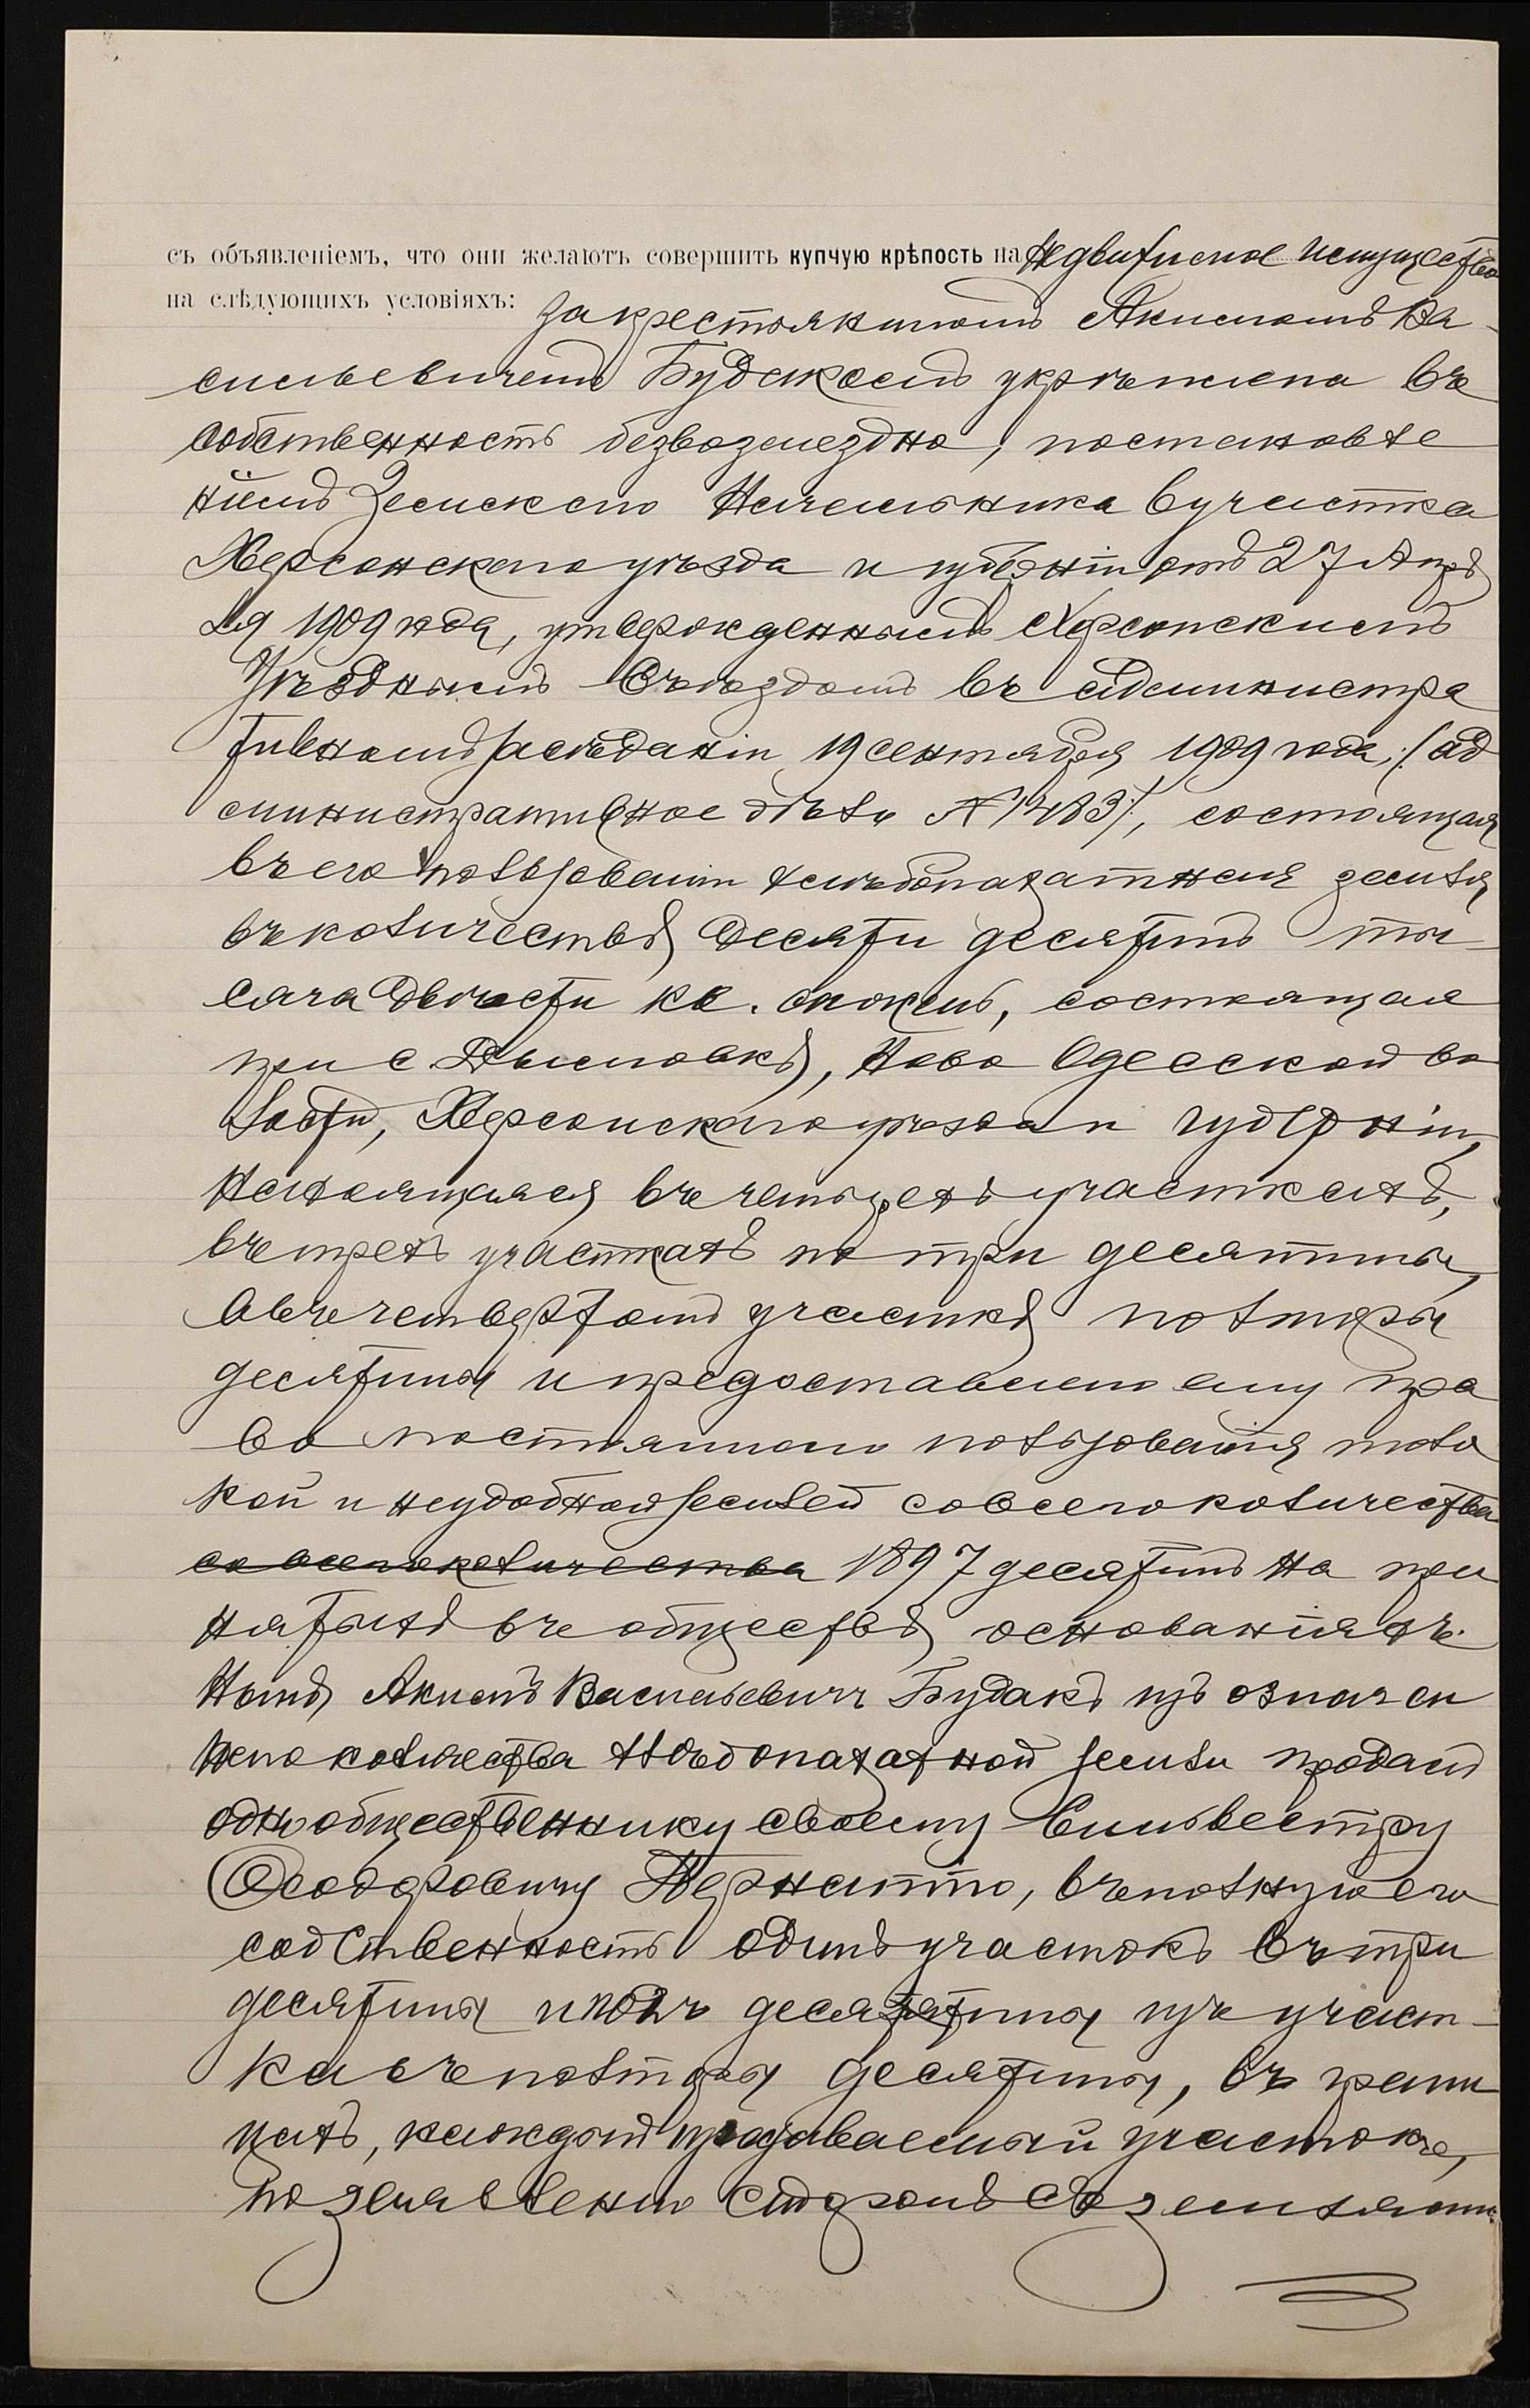 съ объявленіемъ, что они желаютъ совершить купчую крѣпость на недвижимое имущество
на слѣдующихъ условіяхъ: За крестьяниномъ Акимомъ Ва-
сильевичемъ Будакомъ укрѣплена въ
собственность безвозмездно, постановле
ніемъ Земскаго Начальника 6 участка
Херсонскаго уѣзда и губерніи отъ 27 Апрѣ
ля 1909 года, утвержденнымъ Херсонскимъ
Уѣзднымъ Съѣздомъ въ административ
тивномъ засѣданіи 19 сентября 1909 года, /: ад
министративное дѣло № 1483 :/, состоящая
въ его пользованіи хлѣбопахатная земля
въ количествѣ десяти десятинъ ты-
сяча двѣсти кв. сажень, состоящая
при с Дымовкѣ, Ново Одесской во
лости, Херсонскаго уѣзда и губерніи,
находящаяся въ четырехъ участкахъ,
въ трехъ участкахъ по три десятины,
а въ четвертомъ участкѣ полторы
десятины и предоставлено ему пра
во постояннаго пользованія толо
кой и неудобной землей со всего количества
со всего количества 1897 десятинъ на при
нятыхъ въ обществѣ основаніяхъ.
Нынѣ Акимъ Васильевичъ Будакъ изъ означен
наго количества хлѣбопахатной земли продалъ
однообщественнику своему Сильвестру
Ѳеодоровичу Пернатію, въ полную его
собственность одинъ участокъ въ три
десятины и полъ десятины изъ участ-
ка въ полторы десятины, въ грани
цахъ, каждый продаваемый участокъ,
по заявленію сторонъ съ землями